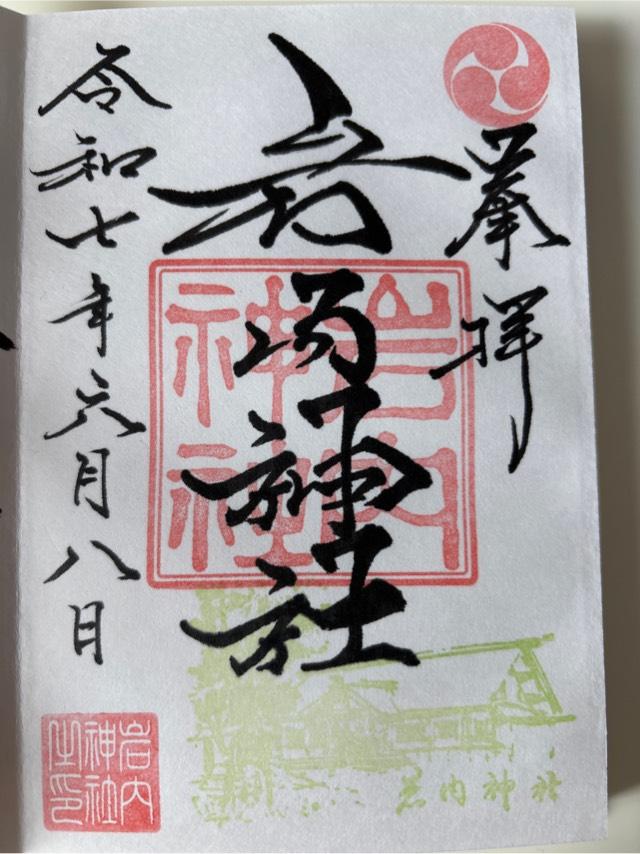 奉拝
岩内神社
令和七年六月八日
岩内神社
岩内神社之印
岩内神社